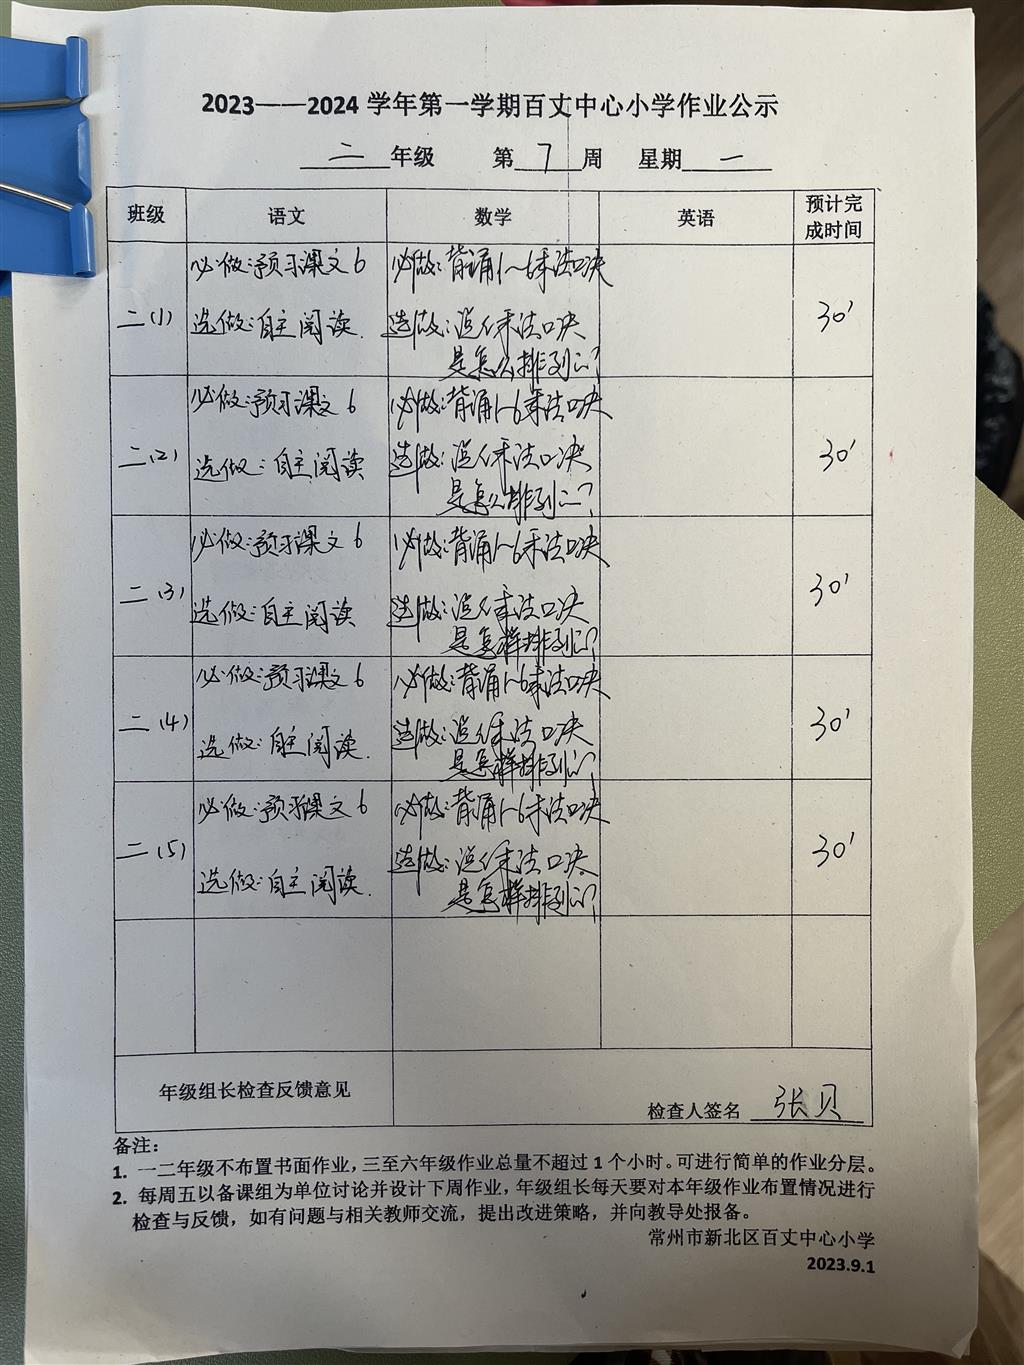 2023——2024 学年第一学期百丈中心小学作业公示
二 年级 第 7 周 星期 一
班级 语文 数学 英语 预计完成时间
必做:预习课文6 必做:背诵1~6乘法口决
二(1) 选做:自主阅读. 选做:说说乘法口决 30'
是怎么排列的?
必做:预习课文6 必做:背诵1~6乘法口决
二(2) 选做:自主阅读 选做:说说乘法口决 30'
是怎么排列的?
必做:预习课文6 必做:背诵1~6乘法口决
二(3) 选做:自主阅读 选做:说说乘法口决 30'
是怎样排列的?
必做:预习课文6 必做:背诵1~6乘法口决
二(4) 选做:自主阅读. 选做:说说乘法口决 30'
是怎样排列的?
必做:预习课文6 必做:背诵1~6乘法口决
二(5) 选做:自主阅读. 选做:说说乘法口决 30'
是怎样排列的?
年级组长检查反馈意见 检查人签名 张贝
备注:
1. 一二年级不布置书面作业,三至六年级作业总量不超过 1 个小时。可进行简单的作业分层。
2. 每周五以备课组为单位讨论并设计下周作业,年级组长每天要对本年级作业布置情况进行
检查与反馈,如有问题与相关教师交流,提出改进策略,并向教导处报备。
常州市新北区百丈中心小学
2023.9.1